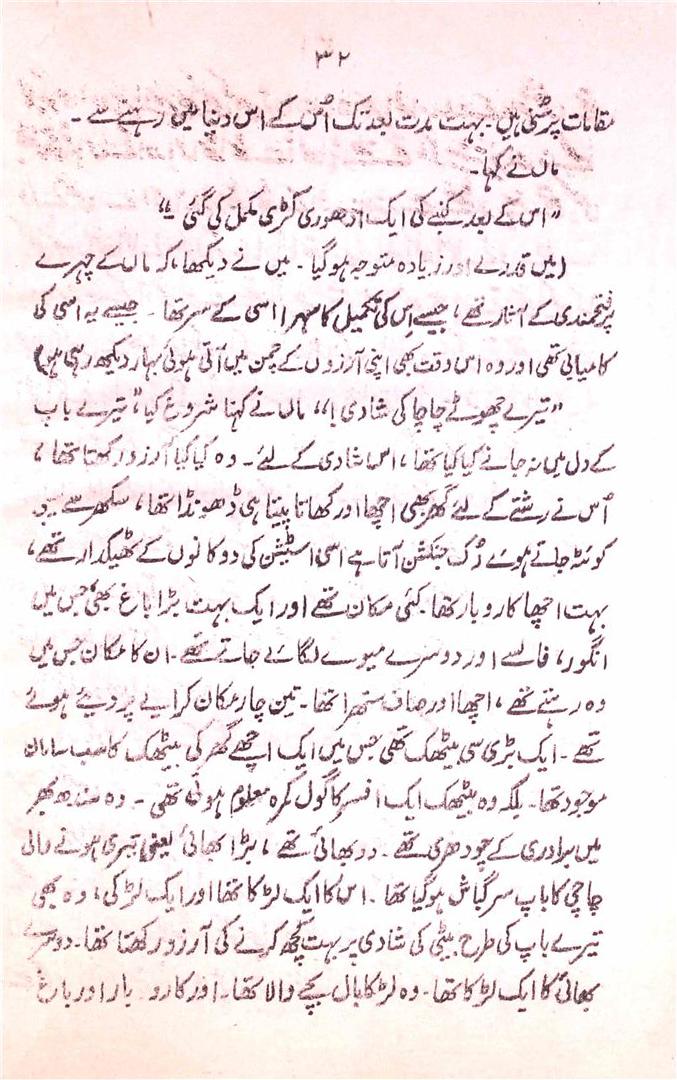 ۳۲
مقامات پر سُنی ہیں۔ بہت مدت بعد تک اُس کے اس دنیا میں رہنے سے۔
ماں نے کہا۔
"اس کے بعد کنبے کی ایک ادھوری کڑی مکمل کی گئی۔"
(میں قدرے اور زیادہ متوجہ ہو گیا۔ میں نے دیکھا، کہ ماں کے چہرے
پر فتحمندی کے آثار تھے، جیسے اِس کی تکمیل کا سہرا اسی کے سر تھا۔ جیسے یہ اسی کی
کامیابی تھی اور وہ اس وقت بھی اپنی آرزوں کے چمن میں آتی ہوئی بہار دیکھ رہی ہیں)
"تیرے چھوٹے چاچا کی شادی!" ماں نے کہنا شروع کیا "تیرے باپ
کے دل میں نہ جانے کیا کیا تھا، اس شادی کے لئے۔ وہ کیا کیا آرزو رکھتا تھا،
اُس نے رشتے کے لئے گھر بھی اچھا اور کھاتا پیتا ہی ڈھونڈا تھا، سکھر سے
کوئٹہ جاتے ہوئے رُک جنکشن آتا ہے اسی اسٹیشن کی دوکانوں کے ٹھیکدار تھے،
بہت اچھا کاروبار تھا۔ کئی مکان تھے اور ایک بہت بڑا باغ بھی جس میں
انگور، فالسے اور دوسرے میوے لگائے جاتے تھے۔ ان کا مکان جس میں
وہ رہتے تھے، اچھا اور صاف ستھرا تھا۔ تین چار مکان کرایے پر دیئے ہوئے
تھے۔ ایک بڑی سی بیٹھک تھی جس میں ایک اچھے گھر کی بیٹھک کا سب سامان
موجود تھا۔ بلکہ وہ بیٹھک ایک افسر کا گول کمرہ معلوم ہوتی تھی۔ وہ سندھ بھر
میں برادری کے چودھری تھے۔ دو بھائی تھے، بڑا بھائی یعنی تیری ہونے والی
چاچی کا باپ سرگباش ہو گیا تھا۔ اس کا ایک لڑکا تھا اور ایک لڑکی، وہ بھی
تیرے باپ کی طرح بیٹی کی شادی پر بہت کچھ کرنے کی آرزو رکھتا تھا۔ دوسرے
بھائی کا ایک لڑکا تھا۔ وہ لڑکا بال بچے والا تھا۔ اور کاروبار اور باغ